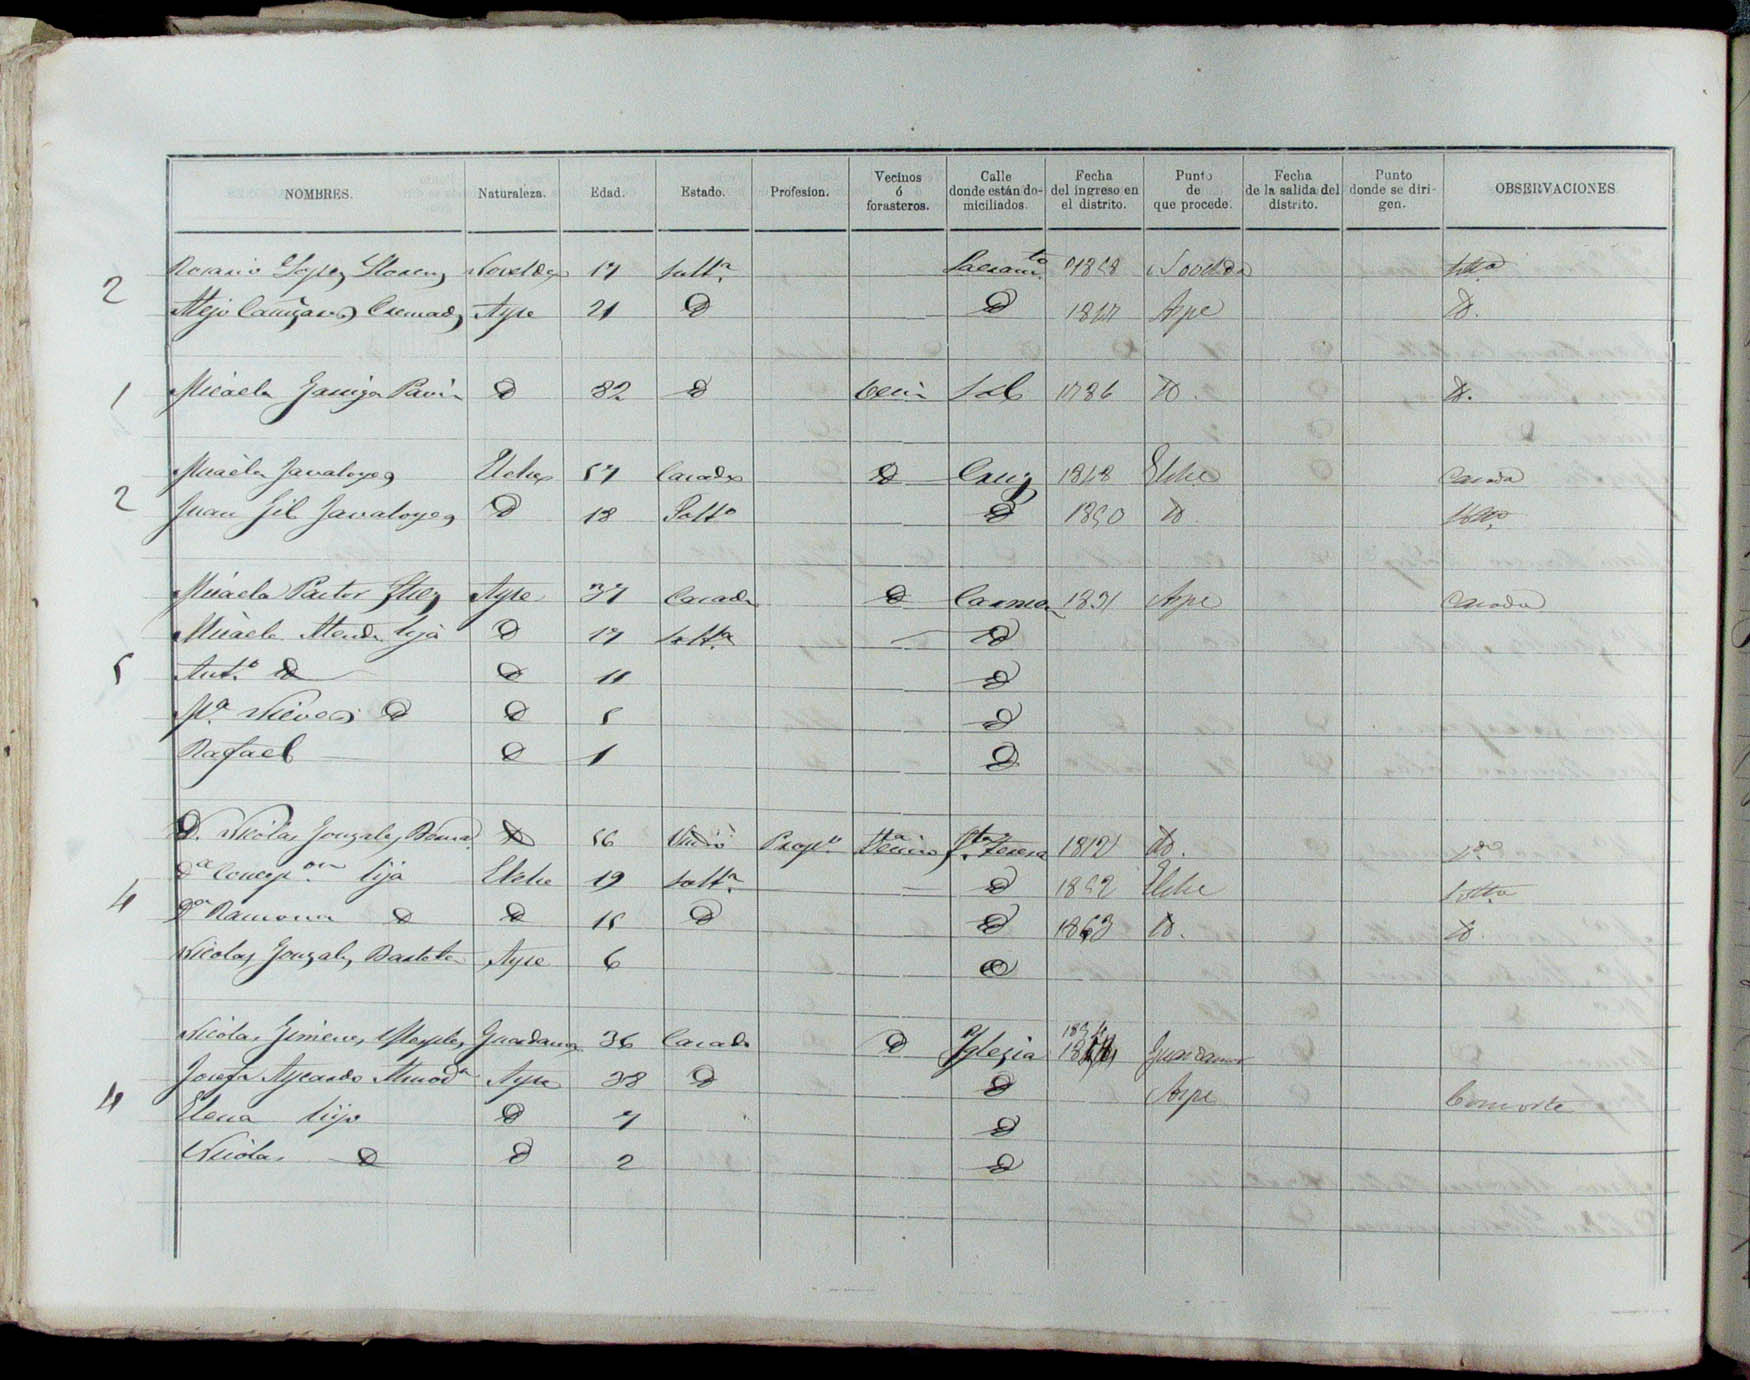 NOMBRES. Naturaleza. Edad. Estado. Profesion. Vecinos ó forasteros. Calle donde están domiciliados. Fecha del ingreso en el distrito. Punto de que procede. Fecha de la salida del distrito. Punto donde se dirigen. OBSERVACIONES
Rosario Lopez Llorens Novelda 17 Soltª Sacramto 1868 Novelda Soltª
2
Alejo Cañizares Cremades Aspe 21 D 1847 Aspe D.
1 Micaela D 82 D Vecin Sol 1786 D. D.
Micaela Javaloyes Elche 57 Casada D Cruz 1868 Elche Casada
2 Juan Gil Javaloyes D 18 Solto D 1850 D Solto
Micaela Pastor Aspe 37 Casada D Carmen 1831 Aspe Casada
Micaela hija D 17 Soltª D
5 Anto D D 11 D
Mª Nieves D D 5 D
Rafael D 1 D
D. Nicolas Gonzalez D 56 Viudo Propo Vecino Sta Teresa 1812 D. Vdo
Dª Concepon hija Elche 19 Soltª D 1852 Elche Soltª
4 Dª Ramona D D 15 D D 1863 D. D.
Nicolas Gonzalez Aspe 6 D
Nicolas Gimenez Guardamar 36 Casado D Yglesia 1834 Guardamar
Josefa Aspe 38 D D Aspe Consorte
4 Elena hijo D 7 D
Nicolas D D 2 D